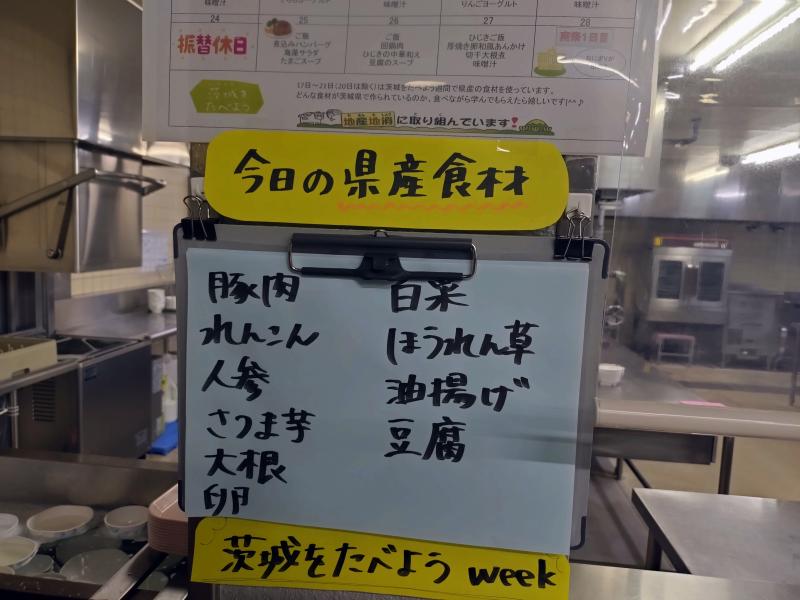 味噌汁
味噌汁
りんごヨーグルト
24
振替休日
25
ご飯
煮込みハンバーグ
海藻サラダ
たまごスープ
26
ご飯
回鍋肉
ひじきの中華和え
豆腐のスープ
27
ひじきご飯
厚焼き卵和風あんかけ
切干大根煮
味噌汁
28
茨城を
たべよう
17日～21日(20日は除く)は茨城をたべよう週間で県産の食材を使っています。
どんな食材が茨城県で作られているのか、食べながら学んでもらえたら嬉しいです(^^♪
地産地消に取り組んでいます!
今日の県産食材
豚肉
れんこん
人参
さつま芋
大根
卵
白菜
ほうれん草
油揚げ
豆腐
茨城をたべよう week